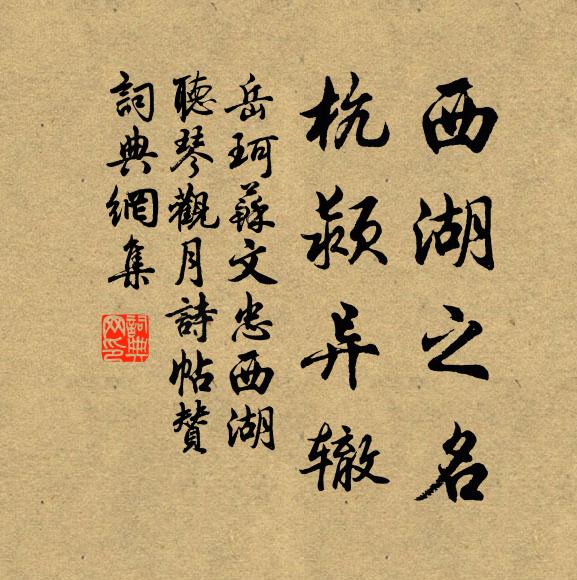 西湖之名
杭颍异辙
岳珂蘇文忠西湖
聽琴觀月詩帖贊
詞典網集
詞典
网印